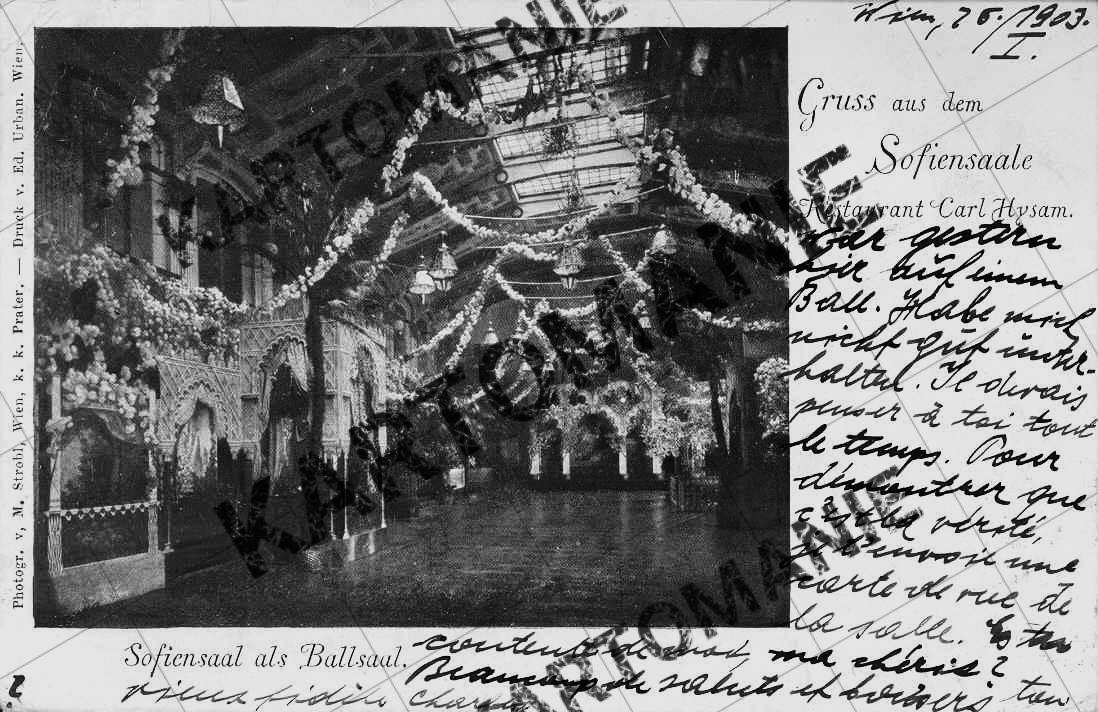 Wien, 26./I. 1903.
Gruss aus dem
Sofiensaale
Restaurant Carl Hysam.
War gestern
hier auf einem
Ball. Habe mich
nicht gut unter-
halten. Je devais
penser à toi tout
le temps. Pour
démontrer que
c'est la vérité,
je t'envoie une
carte de vue de
la salle. Es tu
contente de moi, ma chérie?
Beaucoup de saluts et baisers ton
vieux fidèle
Sofiensaal als Ballsaal.
Photogr. v. M. Strobl, Wien, k. k. Prater. — Druck v. Ed. Urban. Wien.
KARTOMANIE
KARTOMANIE
KARTOMANIE
KARTOMANIE